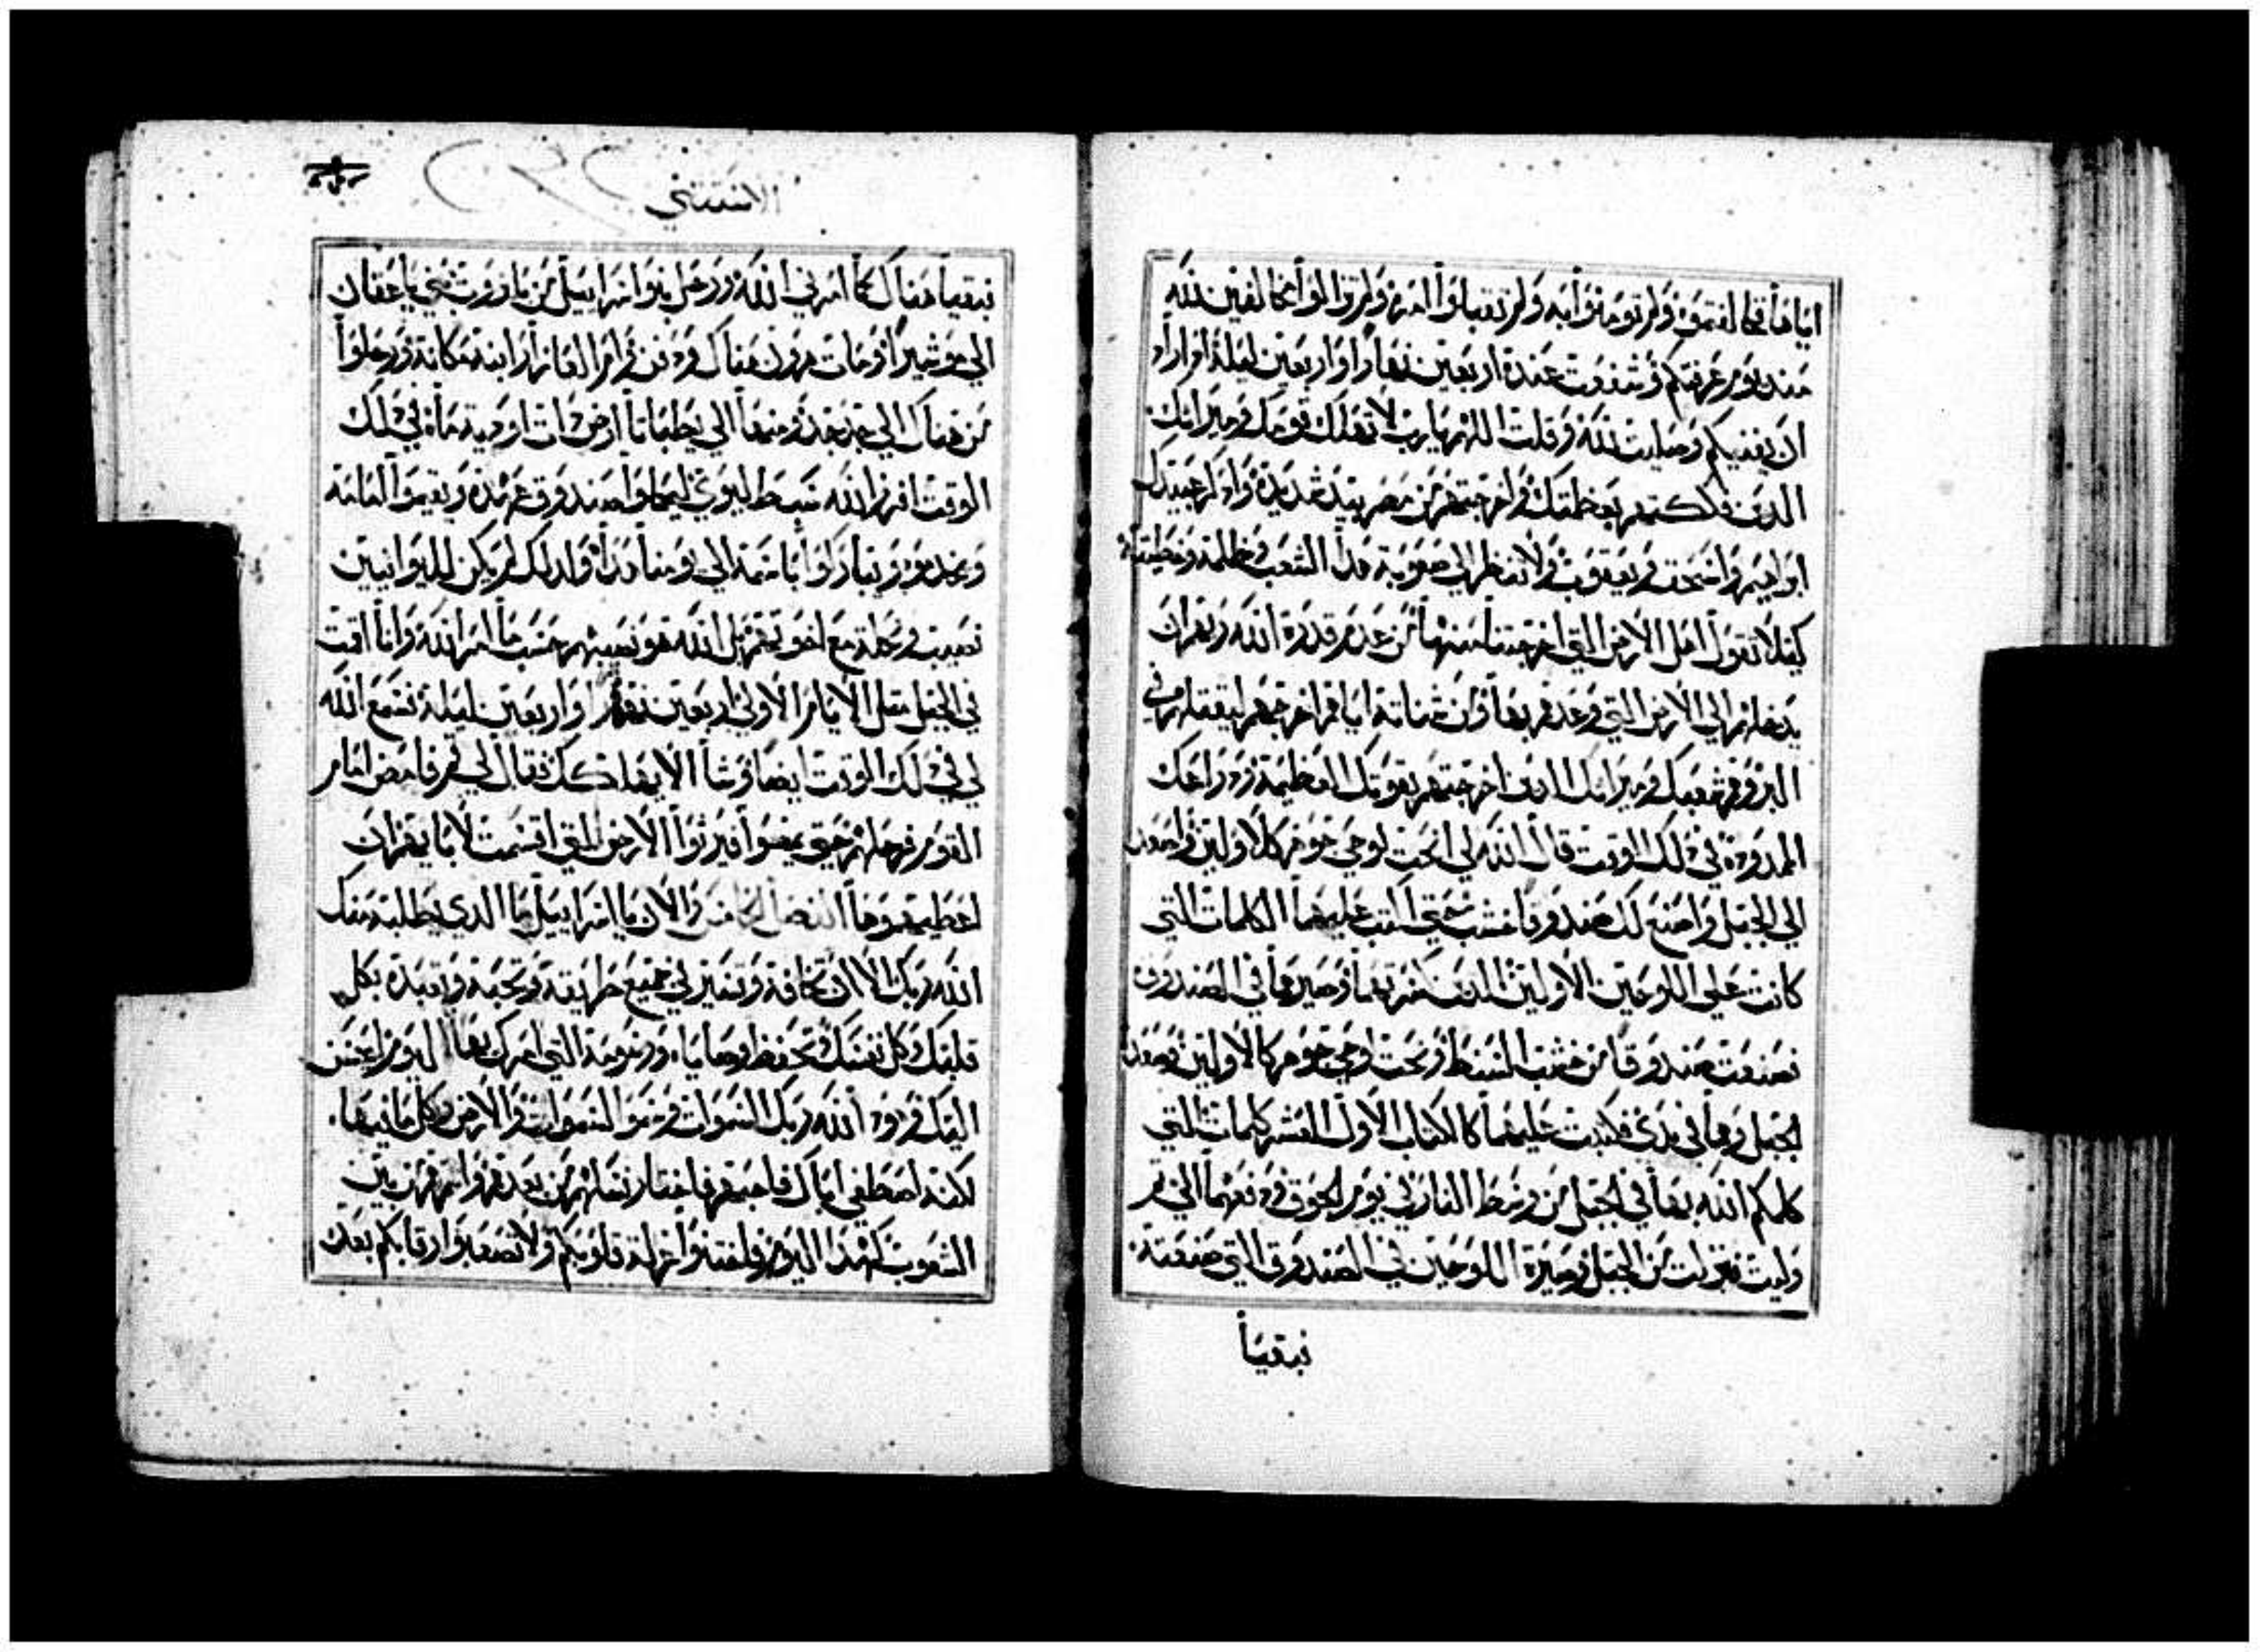 اياها فخالفتموه ولم تومنوا به ولم تقبلوا امره ولم تزالوا مخالفين لله
مند يوم عرفتكم وشفعت عنده اربعين نهارا واربعين ليلة اد اراد
ان يفنيكم وصليت لله وقلت اللهم يارب لا تهلك قومك وميراتك
الدين فككتهم بعظمتك واخرجتهم من مصر بيد شديدة وادكر عبيدك
ابراهيم واسحق ويعقوب ولا تنظر الي صعوبة هدا الشعب وظلمه وخطيته
كيلا تقول اهل الارض التي اخرجتنا منها من عدم قدرة الله ربهم ان
يدخلهم الي الارض التي وعدهم بها وان شناته اياهم اخرجهم ليقتلهم في
البر وهم شعبك وميراتك الدين اخرجتهم بقوتك العظيمة ودراعك
الممدودة في دلك الوقت قال الله لي انحت لوحي جوهر كالاولين واصعد
الي الجبل واصنع لك صندوقا خشب حتي اكتب عليهما الكلمات التي
كانت علي اللوحين الاولين الدين كسرتهما وصيرها في الصندوق
فصنعت صندوقا من خشب السنط ونحت لوحي جوهر كالاولين وصعدت
الجبل وهما في يدي فكتبت عليهما كالكتاب الاول العشر كلمات التي
كلمكم الله بها في الجبل من وسط النار في يوم الجوق ودفعهما الي تم
وليت فنزلت من الجبل وصيرة اللوحين في الصندوق التي صنعته
فبقيا
الاستتني
فبقيا هناك كما امرني الله ورحل بنوا اسرابيل من باروت بني ياعقان
الي موشيرا ومات هرون هناك ودفن وام العازار ابنه مكانه ورحلوا
من هناك الي جدجد ومنها الي يطباتا ارض دات اودية ماه في دلك
الوقت افرز الله سبط ليوي ليحملوا صندوق عهده ويقيموا امامه
ويخدموه ويباركوا باسمه الي يومنا هدا ولدلك لم يكن لليوانيين
نصيب ونحلة مع اخوتهم بل الله هو نصيبهم حسب ما امر الله وانا اقمت
في الجبل مثل الايام الاولي اربعين نهار واربعين ليلة فسمع الله
لي في دلك الوقت ايضا وشا الا يهلكك فقال لي قم فامض امام
القوم فرحلهم حتي يمضوا فيرثوا الارض التي اقسمت لابايهم ان
اعطيهموها الفصل الخامس والان يا اسرابيل ما الدي يطلبه منك
الله ربك الا ان تخافه وتسير في جميع طريقه وتحبه وتعبده بكل
قلبك وكل نفسك وتحفظ وصاياه ورسومه التي امرك بها اليوم احسن
اليك وهودا الله ربك السموات وسمو السموات والارض وكل ما فيها
لكنه اصطفي اباك فاحبهم فاختار نسلهم من بعدهم وانتم من بين
الشعوب كهدا اليوم فاختنوا غرلة قلوبكم ولا تصعبوا رقابكم بعد